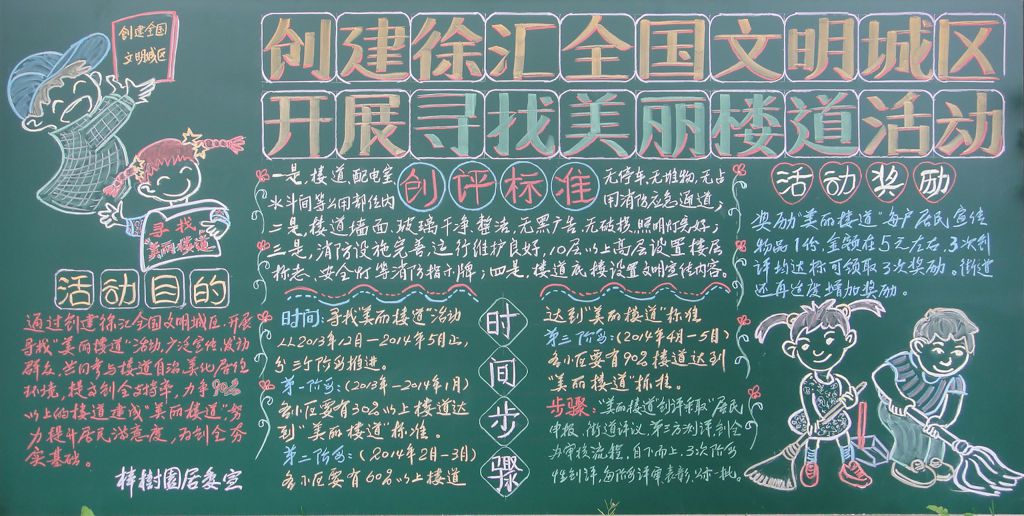 创建全国
文明城区
创建徐汇全国文明城区
开展寻找美丽楼道活动
寻找
"美丽楼道"
活动目的
通过创建徐汇全国文明城区,开展
寻找"美丽楼道"活动,广泛宣传、发动
群众、共同参与楼道自治、美化居住
环境,提高创全支持率,力争90%
以上的楼道建成"美丽楼道",努
力提升居民满意度,为创全夯
实基础。
梓树园居委宣
创评标准
一是,楼道、配电室、
水斗间等公用部位内
无停车、无堆物、无占
用消防应急通道;
二是,楼道墙面、玻璃干净、整洁、无黑广告、无破损、照明灯完好;
三是,消防设施完善,运行维护良好,10层以上高层设置楼层
标志、安全灯等消防指示牌;四是,楼道底楼设置文明宣传内容。
时间步骤
时间:寻找"美丽楼道"活动
从2013年12月—2014年5月止,
分三个阶段推进。
第一阶段:(2013年—2014年1月)
各小区要有30%以上楼道达
到"美丽楼道"标准。
第二阶段:(2014年2月—3月)
各小区要有60%以上楼道
达到"美丽楼道"标准
第三阶段:(2014年4月—5月)
各小区要有90%楼道达到
"美丽楼道"标准。
步骤:"美丽楼道"创评采取"居民
申报、街道评议、第三方测评创全
办审核流程,自下而上,3次阶段
性创评,每阶段评审、表彰、公示一批。
活动奖励
奖励"美丽楼道"每户居民宣传
物品1份,金额在5元左右,3次创
评均达标可领取3次奖励。街道
还再适度增加奖励。